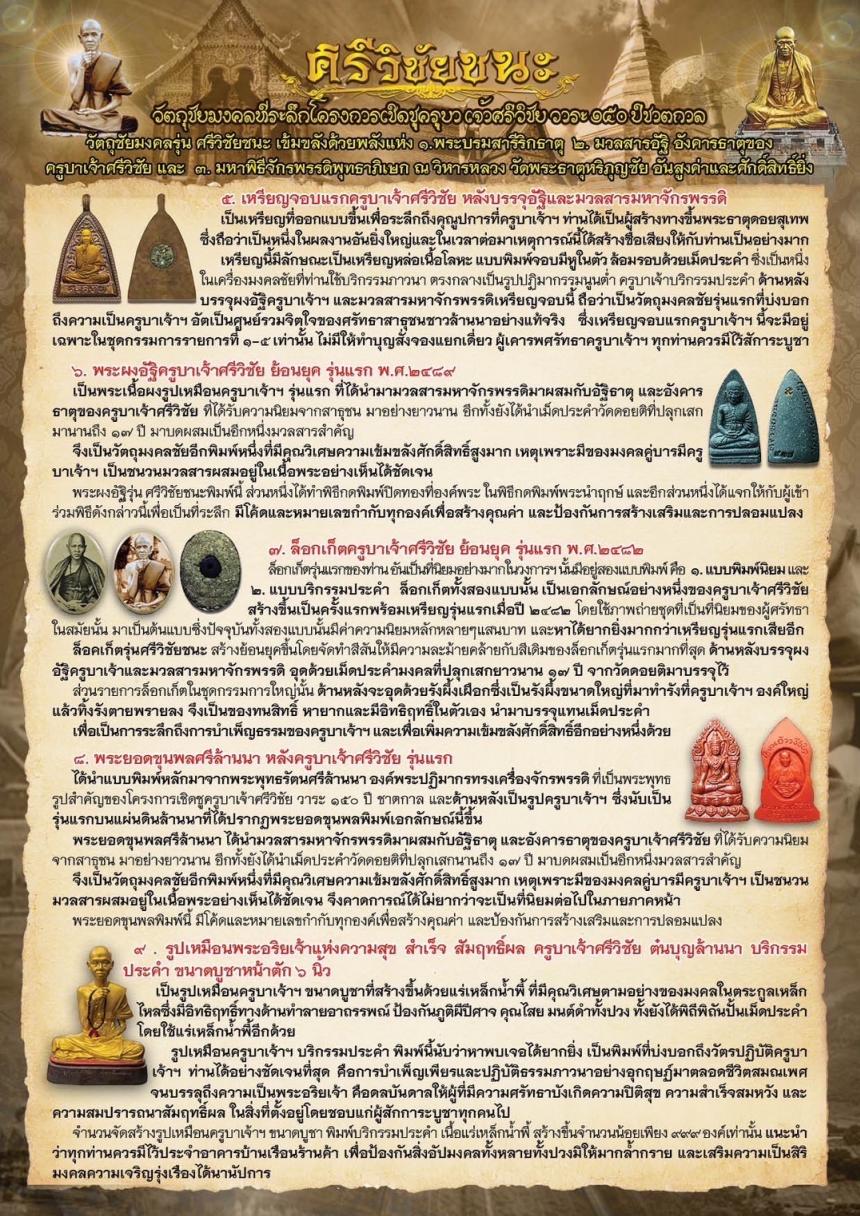 ศรีวิชัยชนะ
วัตถุชัยมงคลที่ระลึกโครงการเชิดชูครูบาเจ้าศรีวิชัย วาระ ๑๕๐ ปีชาตกาล
วัตถุชัยมงคลรุ่น ศรีวิชัยชนะ เข้มขลังด้วยพลังแห่ง ๑.พระบรมสารีริกธาตุ ๒. มวลสารอัฐิ อังคารธาตุของ
ครูบาเจ้าศรีวิชัย และ ๓. มหาพิธีจักรพรรดิพุทธาภิเษก ณ วิหารหลวง วัดพระธาตุหริภุญชัย อันสูงค่าและศักดิ์สิทธิ์ยิ่ง
๕. เหรียญจอบแรกครูบาเจ้าศรีวิชัย หลังบรรจุอัฐิและมวลสารมหาจักรพรรดิ
เป็นเหรียญที่ออกแบบขึ้นเพื่อระลึกถึงคุณูปการที่ครูบาเจ้าฯ ท่านได้เป็นผู้สร้างทางขึ้นพระธาตุดอยสุเทพ
ซึ่งถือว่าเป็นหนึ่งในผลงานอันยิ่งใหญ่และในเวลาต่อมาเหตุการณ์นี้ได้สร้างชื่อเสียงให้กับท่านเป็นอย่างมาก
เหรียญนี้มีลักษณะเป็นเหรียญหล่อเนื้อโลหะ แบบพิมพ์จอบมีหูในตัว ล้อมรอบด้วยเม็ดประคำ ซึ่งเป็นหนึ่ง
ในเครื่องมงคลชัยที่ท่านใช้บริกรรมภาวนา ตรงกลางเป็นรูปปฏิมากรรมนูนต่ำ ครูบาเจ้าบริกรรมประคำ ด้านหลัง
บรรจุผงอัฐิครูบาเจ้าฯ และมวลสารมหาจักรพรรดิเหรียญจอบนี้ ถือว่าเป็นวัตถุมงคลชัยรุ่นแรกที่บ่งบอก
ถึงความเป็นครูบาเจ้าฯ อัตเป็นศูนย์รวมจิตใจของศรัทธาสาธุชนชาวล้านนาอย่างแท้จริง ซึ่งเหรียญจอบแรกครูบาเจ้าฯ นี้จะมีอยู่
เฉพาะในชุดกรรมการรายการที่ ๑-๕ เท่านั้น ไม่มีให้ทำบุญสั่งจองแยกเดี่ยว ผู้เคารพศรัทธาครูบาเจ้าฯ ทุกท่านควรมีไว้สักการะบูชา
๖. พระผงอัฐิครูบาเจ้าศรีวิชัย ย้อนยุค รุ่นแรก พ.ศ.๒๔๘๙
เป็นพระเนื้อผงรูปเหมือนครูบาเจ้าฯ รุ่นแรก ที่ได้นำมามวลสารมหาจักรพรรดิมาผสมกับอัฐิธาตุ และอังคาร
ธาตุของครูบาเจ้าศรีวิชัย ที่ได้รับความนิยมจากสาธุชน มาอย่างยาวนาน อีกทั้งยังได้นำเม็ดประคำวัดดอยติที่ปลุกเสก
มานานถึง ๑๗ ปี มาบดผสมเป็นอีกหนึ่งมวลสารสำคัญ
จึงเป็นวัตถุมงคลชัยอีกพิมพ์หนึ่งที่มีคุณวิเศษความเข้มขลังศักดิ์สิทธิ์สูงมาก เหตุเพราะมีของมงคลคู่บารมีครู
บาเจ้าฯ เป็นชนวนมวลสารผสมอยู่ในเนื้อพระอย่างเห็นได้ชัดเจน
พระผงอัฐิรุ่น ศรีวิชัยชนะพิมพ์นี้ ส่วนหนึ่งได้ทำพิธีกดพิมพ์ปิดทองที่องค์พระ ในพิธีกดพิมพ์พระนำฤกษ์ และอีกส่วนหนึ่งได้แจกให้กับผู้เข้า
ร่วมพิธีดังกล่าวนี้เพื่อเป็นที่ระลึก มีโค้ดและหมายเลขกำกับทุกองค์เพื่อสร้างคุณค่า และป้องกันการสร้างเสริมและการปลอมแปลง
๗. ล็อกเก็ตครูบาเจ้าศรีวิชัย ย้อนยุค รุ่นแรก พ.ศ.๒๔๘๒
ล็อกเก็ตรุ่นแรกของท่าน อันเป็นที่นิยมอย่างมากในวงการฯ นั้นมีอยู่สองแบบพิมพ์ คือ ๑. แบบพิมพ์นิยม และ
๒. แบบบริกรรมประคำ ล็อกเก็ตทั้งสองแบบนั้น เป็นเอกลักษณ์อย่างหนึ่งของครูบาเจ้าศรีวิชัย
สร้างขึ้นเป็นครั้งแรกพร้อมเหรียญรุ่นแรกเมื่อปี ๒๔๘๒ โดยใช้ภาพถ่ายชุดที่เป็นที่นิยมของผู้ศรัทธา
ในสมัยนั้น มาเป็นต้นแบบซึ่งปัจจุบันทั้งสองแบบนั้นมีค่าความนิยมหลักหลายๆแสนบาท และหาได้ยากยิ่งมากกว่าเหรียญรุ่นแรกเสียอีก
ล็อคเก็ตรุ่นศรีวิชัยชนะ สร้างย้อนยุคขึ้นโดยจัดทำสีสันให้มีความละม้ายคล้ายกับสีเดิมของล็อกเก็ตรุ่นแรกมากที่สุด ด้านหลังบรรจุผง
อัฐิครูบาเจ้าและมวลสารมหาจักรพรรดิ อุดด้วยเม็ดประคำมงคลที่ปลุกเสกยาวนาน ๑๗ ปี จากวัดดอยติมาบรรจุไว้
ส่วนรายการล็อกเก็ตในชุดกรรมการใหญ่นั้น ด้านหลังจะอุดด้วยรังผึ้งเผือกซึ่งเป็นรังผึ้งขนาดใหญ่ที่มาทำรังที่ครูบาเจ้าฯ องค์ใหญ่
แล้วทิ้งรังตายพรายลง จึงเป็นของทนสิทธิ์ หายากและมีอิทธิฤทธิ์ในตัวเอง นำมาบรรจุแทนเม็ดประคำ
เพื่อเป็นการระลึกถึงการบำเพ็ญธรรมของครูบาเจ้าฯ และเพื่อเพิ่มความเข้มขลังศักดิ์สิทธิ์อีกอย่างหนึ่งด้วย
๘. พระยอดขุนพลศรีล้านนา หลังครูบาเจ้าศรีวิชัย รุ่นแรก
ได้นำแบบพิมพ์หลักมาจากพระพุทธรัตนศรีล้านนา องค์พระปฏิมากรทรงเครื่องจักรพรรดิ ที่เป็นพระพุทธ
รูปสำคัญของโครงการเชิดชูครูบาเจ้าศรีวิชัย วาระ ๑๕๐ ปี ชาตกาล และด้านหลังเป็นรูปครูบาเจ้าฯ ซึ่งนับเป็น
รุ่นแรกบนแผ่นดินล้านนาที่ได้ปรากฏพระยอดขุนพลพิมพ์เอกลักษณ์นี้ขึ้น
พระยอดขุนพลศรีล้านนา ได้นำมวลสารมหาจักรพรรดิมาผสมกับอัฐิธาตุ และอังคารธาตุของครูบาเจ้าศรีวิชัย ที่ได้รับความนิยม
จากสาธุชน มาอย่างยาวนาน อีกทั้งยังได้นำเม็ดประคำวัดดอยติที่ปลุกเสกนานถึง ๑๗ ปี มาบดผสมเป็นอีกหนึ่งมวลสารสำคัญ
จึงเป็นวัตถุมงคลชัยอีกพิมพ์หนึ่งที่มีคุณวิเศษความเข้มขลังศักดิ์สิทธิ์สูงมาก เหตุเพราะมีของมงคลคู่บารมีครูบาเจ้าฯ เป็นชนวน
มวลสารผสมอยู่ในเนื้อพระอย่างเห็นได้ชัดเจน จึงคาดการณ์ได้ไม่ยากว่าจะเป็นที่นิยมต่อไปในภายภาคหน้า
พระยอดขุนพลพิมพ์นี้ มีโค้ดและหมายเลขกำกับทุกองค์เพื่อสร้างคุณค่า และป้องกันการสร้างเสริมและการปลอมแปลง
๙ . รูปเหมือนพระอริยเจ้าแห่งความสุข สำเร็จ สัมฤทธิ์ผล ครูบาเจ้าศรีวิชัย ต๋นบุญล้านนา บริกรรม
ประคำ ขนาดบูชาหน้าตัก ๖ นิ้ว
เป็นรูปเหมือนครูบาเจ้าฯ ขนาดบูชาที่สร้างขึ้นด้วยแร่เหล็กน้ำพี้ ที่มีคุณวิเศษตามอย่างของมงคลในตระกูลเหล็ก
ไหลซึ่งมีอิทธิฤทธิ์ทางด้านทำลายอาถรรพณ์ ป้องกันภูติผีปีศาจ คุณไสย มนต์ดำทั้งปวง ทั้งยังได้พิถีพิถันปั้นเม็ดประคำ
โดยใช้แร่เหล็กน้ำพี้อีกด้วย
รูปเหมือนครูบาเจ้าฯ บริกรรมประคำ พิมพ์นี้นับว่าหาพบเจอได้ยากยิ่ง เป็นพิมพ์ที่บ่งบอกถึงวัตรปฏิบัติครูบา
เจ้าฯ ท่านได้อย่างชัดเจนที่สุด คือการบำเพ็ญเพียรและปฏิบัติธรรมภาวนาอย่างอุกฤษฏ์มาตลอดชีวิตสมณเพศ
จนบรรลุถึงความเป็นพระอริยเจ้า คือดลบันดาลให้ผู้ที่มีความศรัทธาบังเกิดความปิติสุข ความสำเร็จสมหวัง และ
ความสมปรารถนาสัมฤทธิ์ผล ในสิ่งที่ตั้งอยู่โดยชอบแก่ผู้สักการะบูชาทุกคนไป
จำนวนจัดสร้างรูปเหมือนครูบาเจ้าฯ ขนาดบูชา พิมพ์บริกรรมประคำ เนื้อแร่เหล็กน้ำพี้ สร้างขึ้นจำนวนน้อยเพียง ๙๙๙ องค์เท่านั้น แนะนำ
ว่าทุกท่านควรมีไว้ประจำอาคารบ้านเรือนร้านค้า เพื่อป้องกันสิ่งอัปมงคลทั้งหลายทั้งปวงมิให้มากล้ำกราย และเสริมความเป็นสิริ
มงคลความเจริญรุ่งเรืองได้นานัปการ